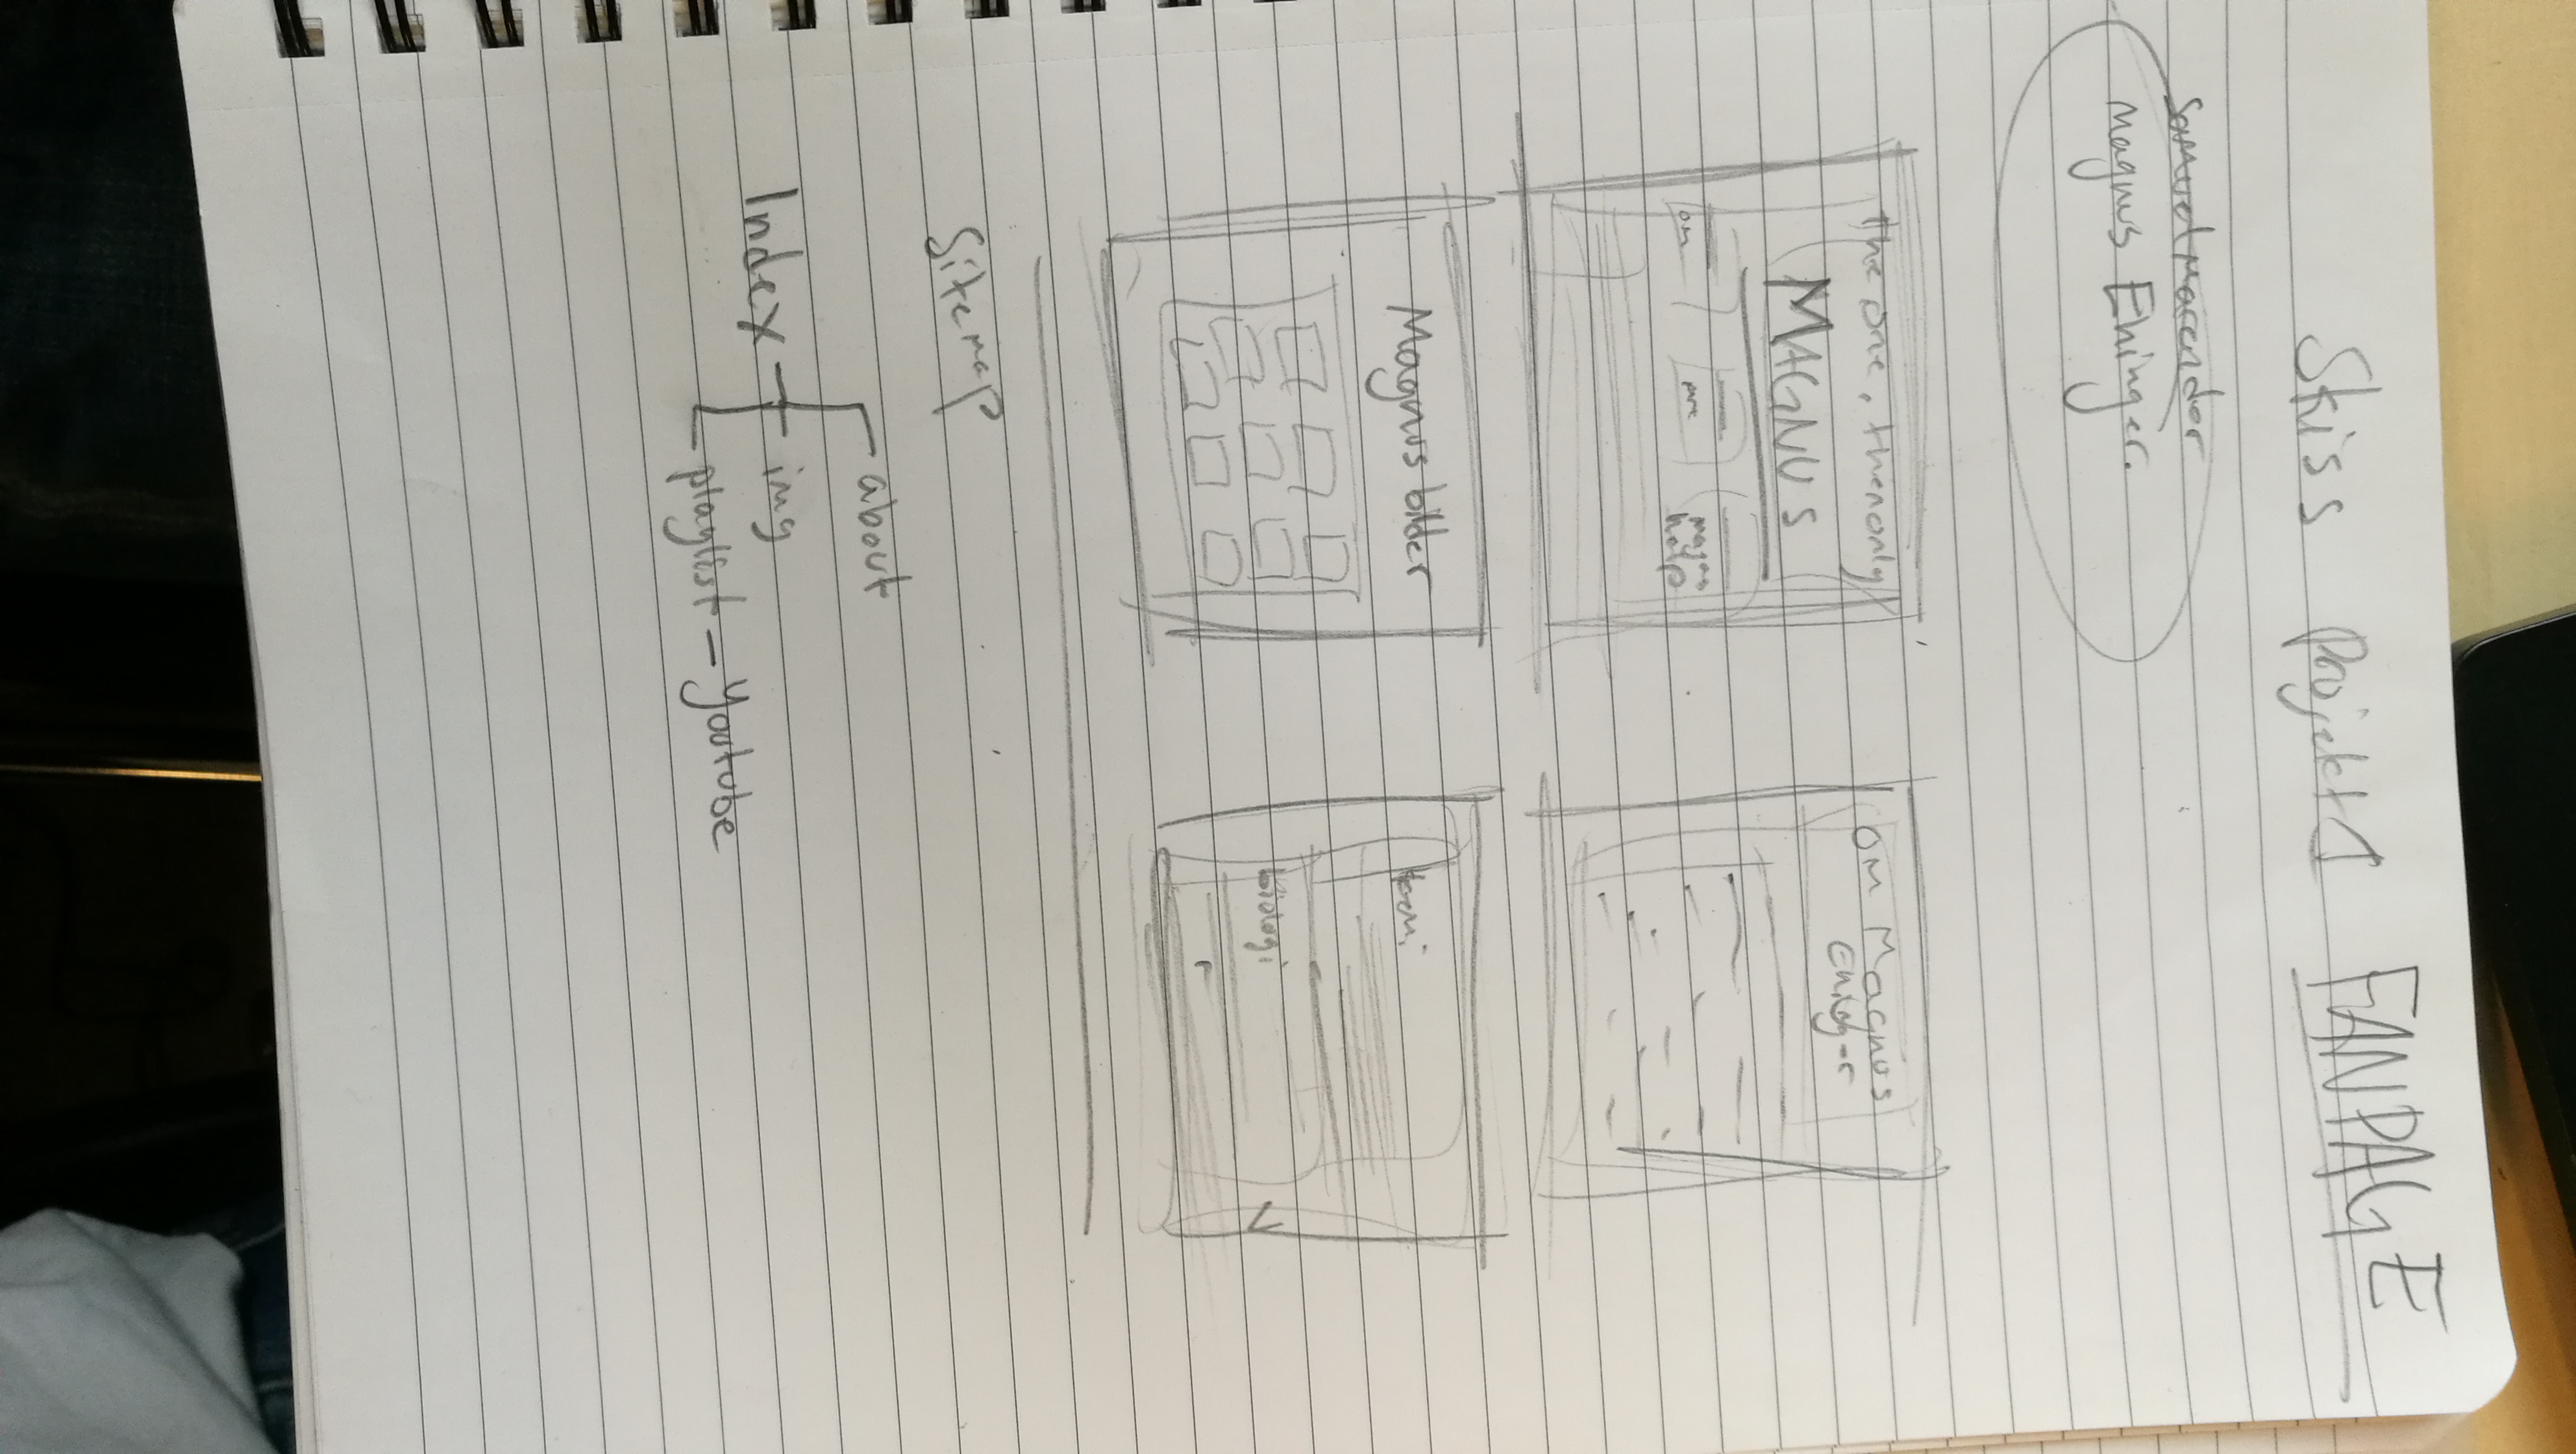 Skiss Projekt 1 FANPAGE
Magnus Ehinger.
The one, the only
MAGNUS
om
mag
help
OM Magnus
Ehinger
Magnus bilder
kemi
biologi
Sitemap
Index
about
img
playlist - youtube